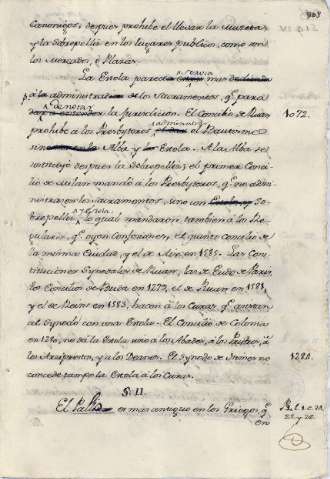 Canonigos, despues prohibe el llevar la Muzeta
y la sobrepelliz en los lugares publicos, como son
los Mercados, ò Plazas.
La Estola parece a servia mas
p.a la administracion de los Sacramentos, q.e para
denotar la Jurisdiccion. El Concilio de Ruan
prohibe à los Presbyteros administrar el Bautismo
sin Alba y Estola. A la Alba se
substituyò despues la Sobrepelliz; y el primer Conci-
lio de Milan mandò à los Presbyteros, q.e no admi-
nistrasen los Sacramentos, sino con Sobre-
pelliz, y Estola, lo qual mandaron tambien à los Re-
gulares, q.e oyen Confesiones, el quinto Concilio de
la misma Ciudad, y el de Aix en 1585. Las Con-
stituciones Synodales de Ruan, las de Eudo de Paris,
los Concilios de Buda en 1279, el de Ruan en 1581
y el de Reims en 1583, hacen à los Curas, q.e asistan
al Synodo con una Estola. El Concilio de Colonia
en 1280, no dà la Estola sino à los Abades, à los Priores, à
los Arciprestes, y à los Deanes. El Synodo de
concede tampoco la Estola à los Curas.
§. II.
El Palio es mas antiguo en los Griegos q.e
en
1072.
1280.